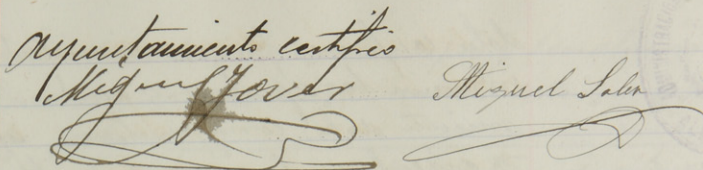 Ayuntamiento certifico
Miguel Jover Miguel Soler